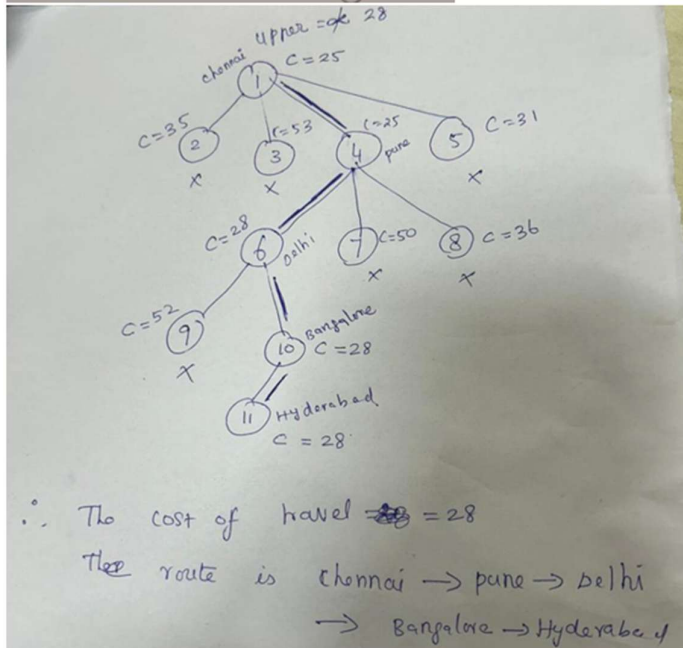 upper = 28
chennai 1 C = 25
C=35 2 C=53 3 4 C=25 pune 5 C=31
X X X
C=28 6 Delhi 7 C=50 8 C=36
X X
C=52 9 10 Bangalore C=28
X
11 Hyderabad
C = 28
∴ The cost of travel = 28
The route is chennai → pune → Delhi
→ Bangalore → Hyderabad